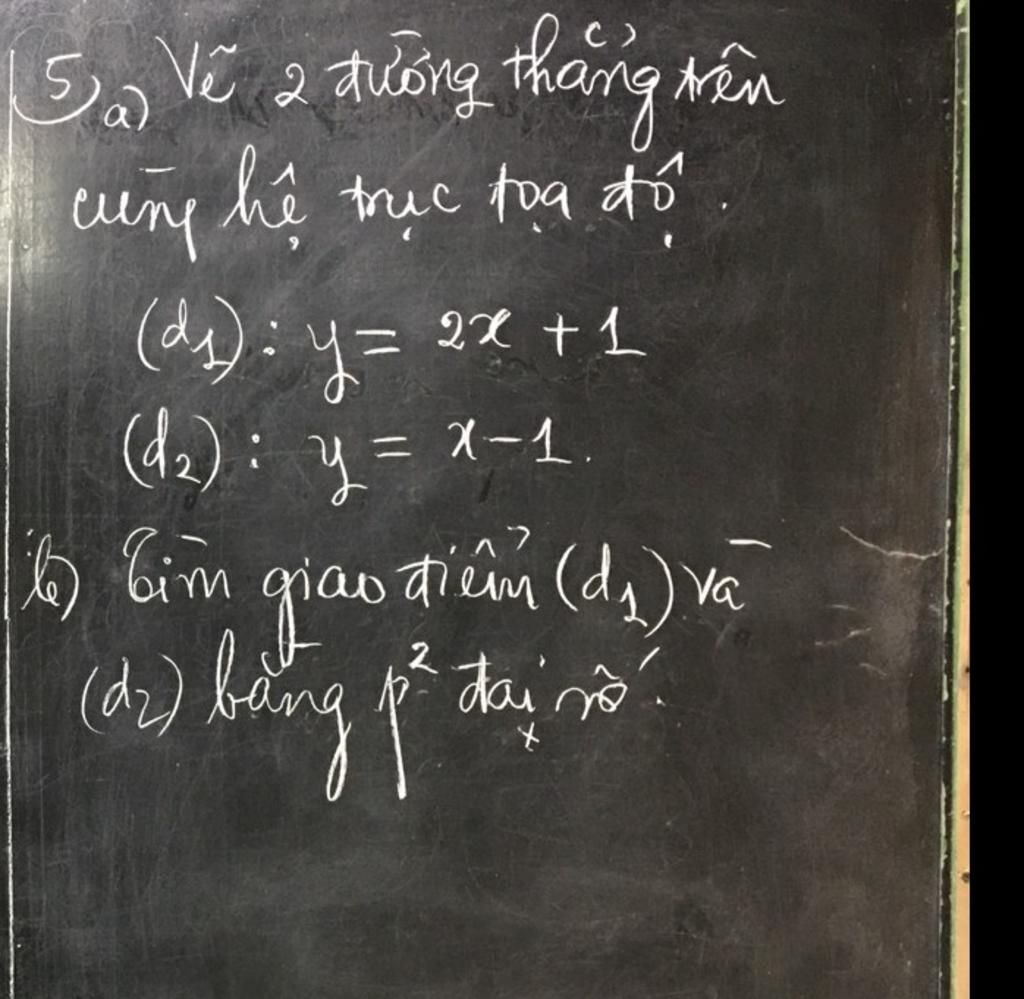 5) a) Vẽ 2 đường thẳng trên
cùng hệ trục tọa độ.
(d1): y = 2x + 1
(d2): y = x - 1.
b) Tìm giao điểm (d1) và
(d2) bằng p² đại số.